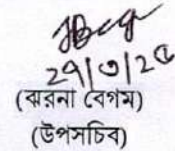 ২৭/৩/২৫
(ঝরনা বেগম)
(উপসচিব)